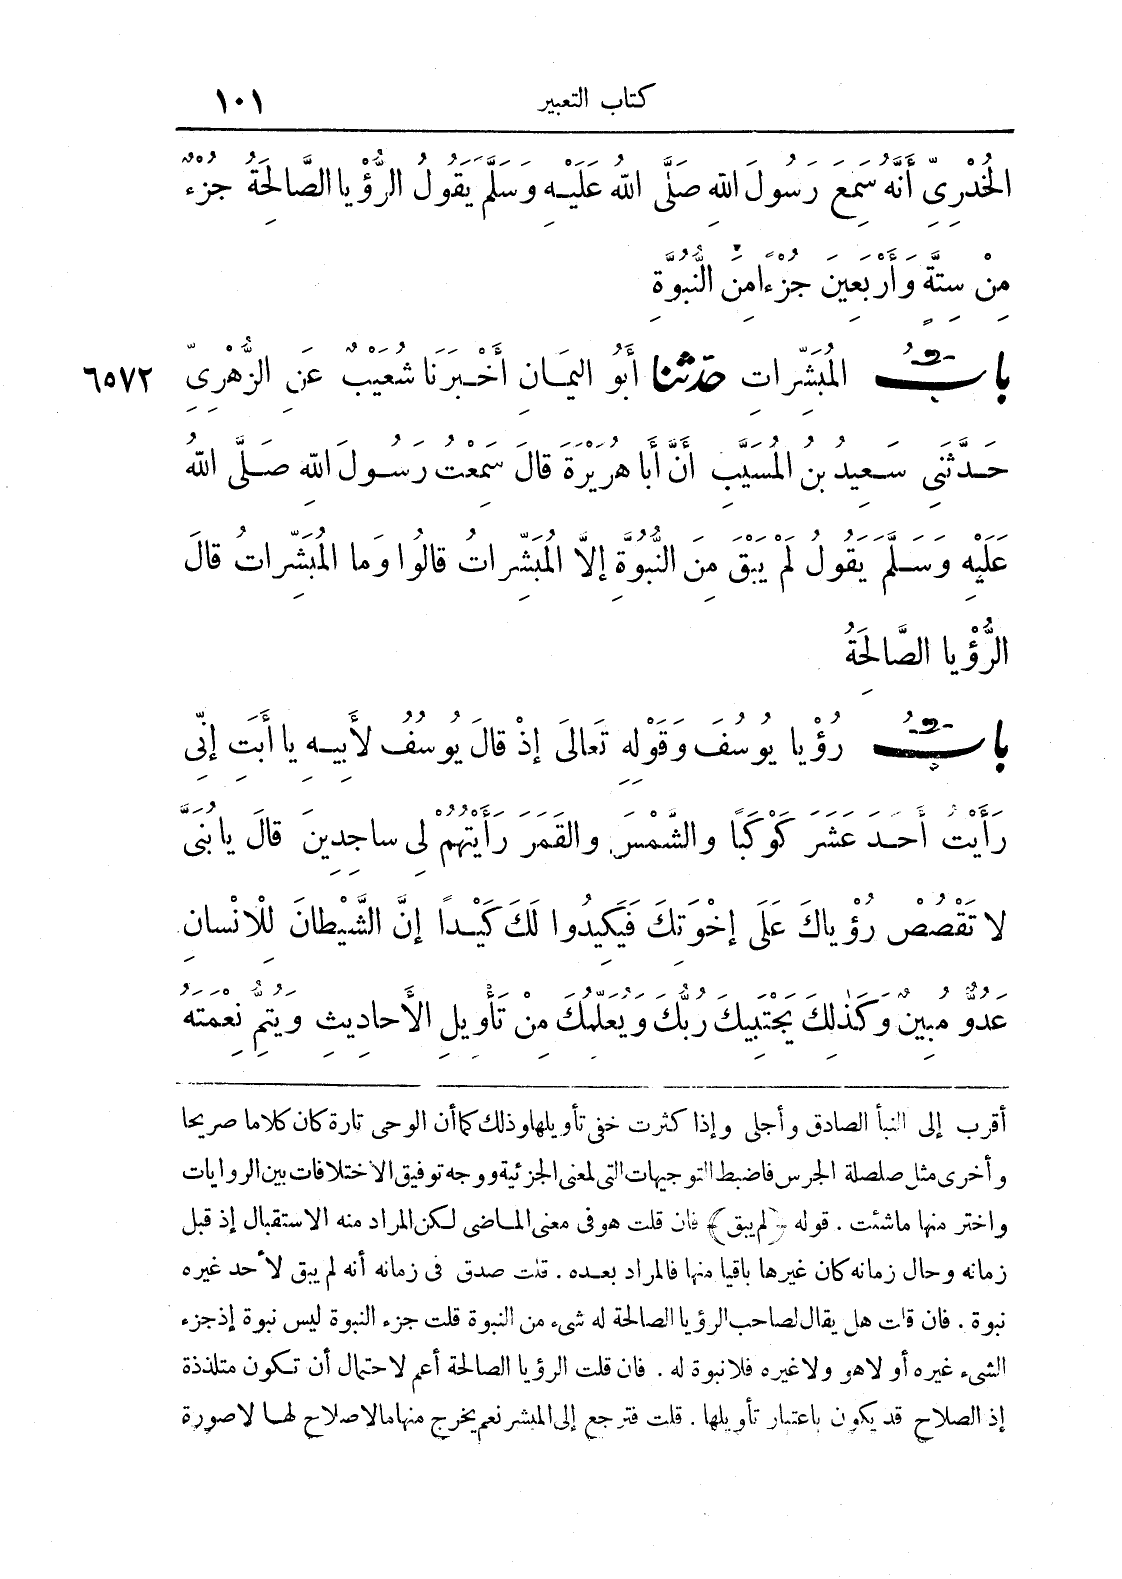 كتاب التعبير ١٠١
الخُدْرِيِّ أَنَّهُ سَمِعَ رَسُولَ اللهِ صَلَّى اللهُ عَلَيْهِ وَسَلَّمَ يَقُولُ الرُّؤْيا الصَّالِحَةُ جُزْءٌ
مِنْ سِتَّةٍ وَأَرْبَعِينَ جُزْءًا مِنَ النُّبُوَّةِ
بابُ المُبَشِّراتِ حدثنا أَبُو اليَمَانِ أَخْبَرَنَا شُعَيْبٌ عَنِ الزُّهْرِيِّ ٦٥٧٢
حَدَّثَنِي سَعِيدُ بنُ المُسَيَّبِ أَنَّ أَبا هُرَيْرَةَ قالَ سَمِعْتُ رَسُولَ اللهِ صَلَّى اللهُ
عَلَيْهِ وَسَلَّمَ يَقُولُ لَمْ يَبْقَ مِنَ النُّبُوَّةِ إلَّا المُبَشِّراتُ قالُوا وَما المُبَشِّراتُ قالَ
الرُّؤْيا الصَّالِحَةُ
بابُ رُؤْيا يُوسُفَ وَقَوْلِهِ تَعَالَى إذْ قالَ يُوسُفُ لأَبِيهِ يا أَبَتِ إنِّي
رَأَيْتُ أَحَدَ عَشَرَ كَوْكَبًا والشَّمْسَ والقَمَرَ رَأَيْتُهُمْ لِي ساجِدِينَ قالَ يا بُنَيَّ
لا تَقْصُصْ رُؤْياكَ عَلَى إخْوَتِكَ فَيَكِيدُوا لَكَ كَيْدًا إنَّ الشَّيْطانَ لِلْإنْسانِ
عَدُوٌّ مُبِينٌ وَكَذٰلِكَ يَجْتَبِيكَ رَبُّكَ وَيُعَلِّمُكَ مِنْ تَأْوِيلِ الأَحادِيثِ وَيُتِمُّ نِعْمَتَهُ
أقرب إلى النبأ الصادق وأجلى وإذا كثرت خفى تأويلها وذلك كما أن الوحى تارة كان كلاما صريحا
وأخرى مثل صلصلة الجرس فاضبط التوجيهات التى لمعنى الجزئية ووجه توفيق الاختلافات بين الروايات
واختر منها ما شئت . قوله ﴿لم يبق﴾ فان قلت هو فى معنى الماضى لكن المراد منه الاستقبال إذ قبل
زمانه وحال زمانه كان غيرها باقيا منها فالمراد بعده . قلت صدق فى زمانه أنه لم يبق لأحد غيره
نبوة . فان قلت هل يقال لصاحب الرؤيا الصالحة له شىء من النبوة قلت جزء النبوة ليس نبوة إذ جزء
الشىء غيره أو لا هو ولا غيره فلا نبوة له . فان قلت الرؤيا الصالحة أعم لاحتمال أن تكون متلذذة
إذ الصلاح قد يكون باعتبار تأويلها . قلت فترجع إلى المبشر نعم يخرج منها ما لا صلاح لها لا صورة